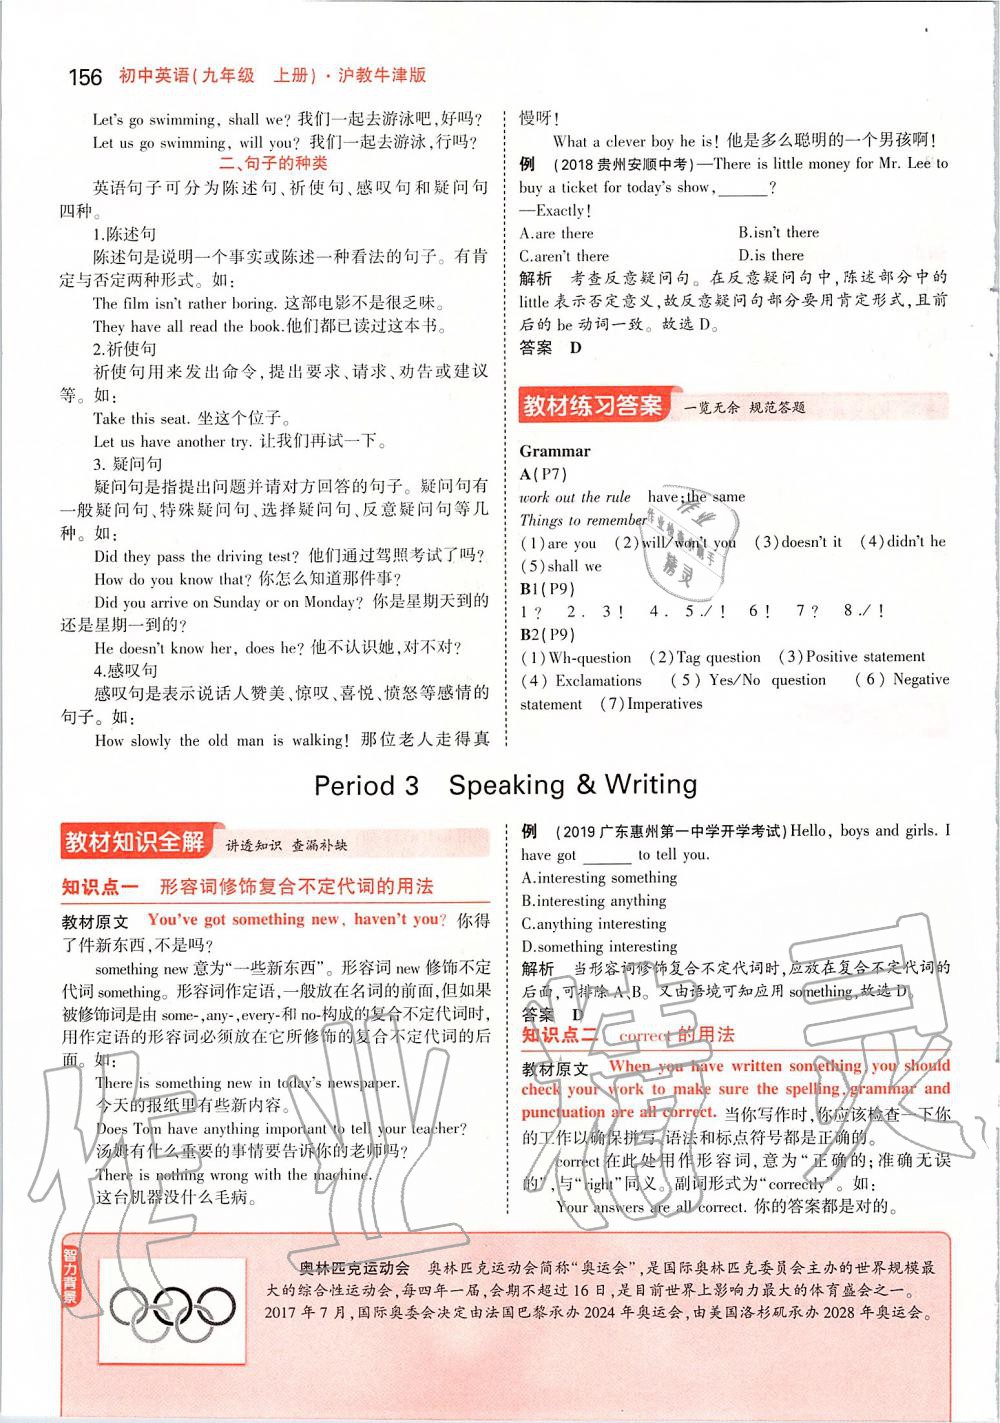 156 初中英语(九年级 上册)·沪教牛津版
Let's go swimming, shall we? 我们一起去游泳吧,好吗?
Let us go swimming, will you? 我们一起去游泳,行吗?
二、句子的种类
英语句子可分为陈述句、祈使句、感叹句和疑问句
四种。
1.陈述句
陈述句是说明一个事实或陈述一种看法的句子。有肯
定与否定两种形式。如:
The film isn't rather boring. 这部电影不是很乏味。
They have all read the book.他们都已读过这本书。
2.祈使句
祈使句用来发出命令,提出要求、请求、劝告或建议
等。如:
Take this seat. 坐这个位子。
Let us have another try. 让我们再试一下。
3. 疑问句
疑问句是指提出问题并请对方回答的句子。疑问句有
一般疑问句、特殊疑问句、选择疑问句、反意疑问句等几
种。如:
Did they pass the driving test? 他们通过驾照考试了吗?
How do you know that? 你怎么知道那件事?
Did you arrive on Sunday or on Monday? 你是星期天到的
还是星期一到的?
He doesn't know her, does he? 他不认识她,对不对?
4.感叹句
感叹句是表示说话人赞美、惊叹、喜悦、愤怒等感情的
句子。如:
How slowly the old man is walking! 那位老人走得真
慢呀!
What a clever boy he is! 他是多么聪明的一个男孩啊!
例 (2018贵州安顺中考)—There is little money for Mr. Lee to
buy a ticket for today's show,______?
—Exactly!
A.are there B.isn't there
C.aren't there D.is there
解析 考查反意疑问句。在反意疑问句中,陈述部分中的
little表示否定意义,故反意疑问句部分要用肯定形式,且前
后的be动词一致。故选D。
答案 D
教材练习答案 一览无余 规范答题
Grammar
A(P7)
work out the rule have;the same
Things to remember
(1)are you (2)will/won't you (3)doesn't it (4)didn't he
(5)shall we
B1(P9)
1? 2. 3! 4. 5./! 6! 7? 8./!
B2(P9)
(1)Wh-question (2)Tag question (3)Positive statement
(4) Exclamations (5) Yes/No question (6) Negative
statement (7)Imperatives
Period 3 Speaking & Writing
教材知识全解 讲透知识 查漏补缺
知识点一 形容词修饰复合不定代词的用法
教材原文 You've got something new, haven't you? 你得
了件新东西,不是吗?
something new意为“一些新东西”。形容词new修饰不定
代词something。形容词作定语,一般放在名词的前面,但如果
被修饰词是由some-,any-,every-和no-构成的复合不定代词时,
用作定语的形容词必须放在它所修饰的复合不定代词的后
面。如:
There is something new in today's newspaper.
今天的报纸里有些新内容。
Does Tom have anything important to tell your teacher?
汤姆有什么重要的事情要告诉你的老师吗?
There is nothing wrong with the machine.
这台机器没什么毛病。
例 (2019广东惠州第一中学开学考试)Hello, boys and girls. I
have got ______ to tell you.
A.interesting something
B.interesting anything
C.anything interesting
D.something interesting
解析 当形容词修饰复合不定代词时,应放在复合不定代词的
后面,可排除A、B。又由语境可知应用something,故选D。
答案 D
知识点二 correct的用法
教材原文 When you have written something, you should
check your work to make sure the spelling, grammar and
punctuation are all correct. 当你写作时,你应该检查一下你
的工作以确保拼写、语法和标点符号都是正确的。
correct在此处用作形容词,意为“正确的;准确无误
的”,与“right”同义。副词形式为“correctly”。如:
Your answers are all correct. 你的答案都是对的。
智力背景
奥林匹克运动会 奥林匹克运动会简称“奥运会”,是国际奥林匹克委员会主办的世界规模最
大的综合性运动会,每四年一届,会期不超过16日,是目前世界上影响力最大的体育盛会之一。
2017年7月,国际奥委会决定由法国巴黎承办2024年奥运会,由美国洛杉矶承办2028年奥运会。
作业精灵